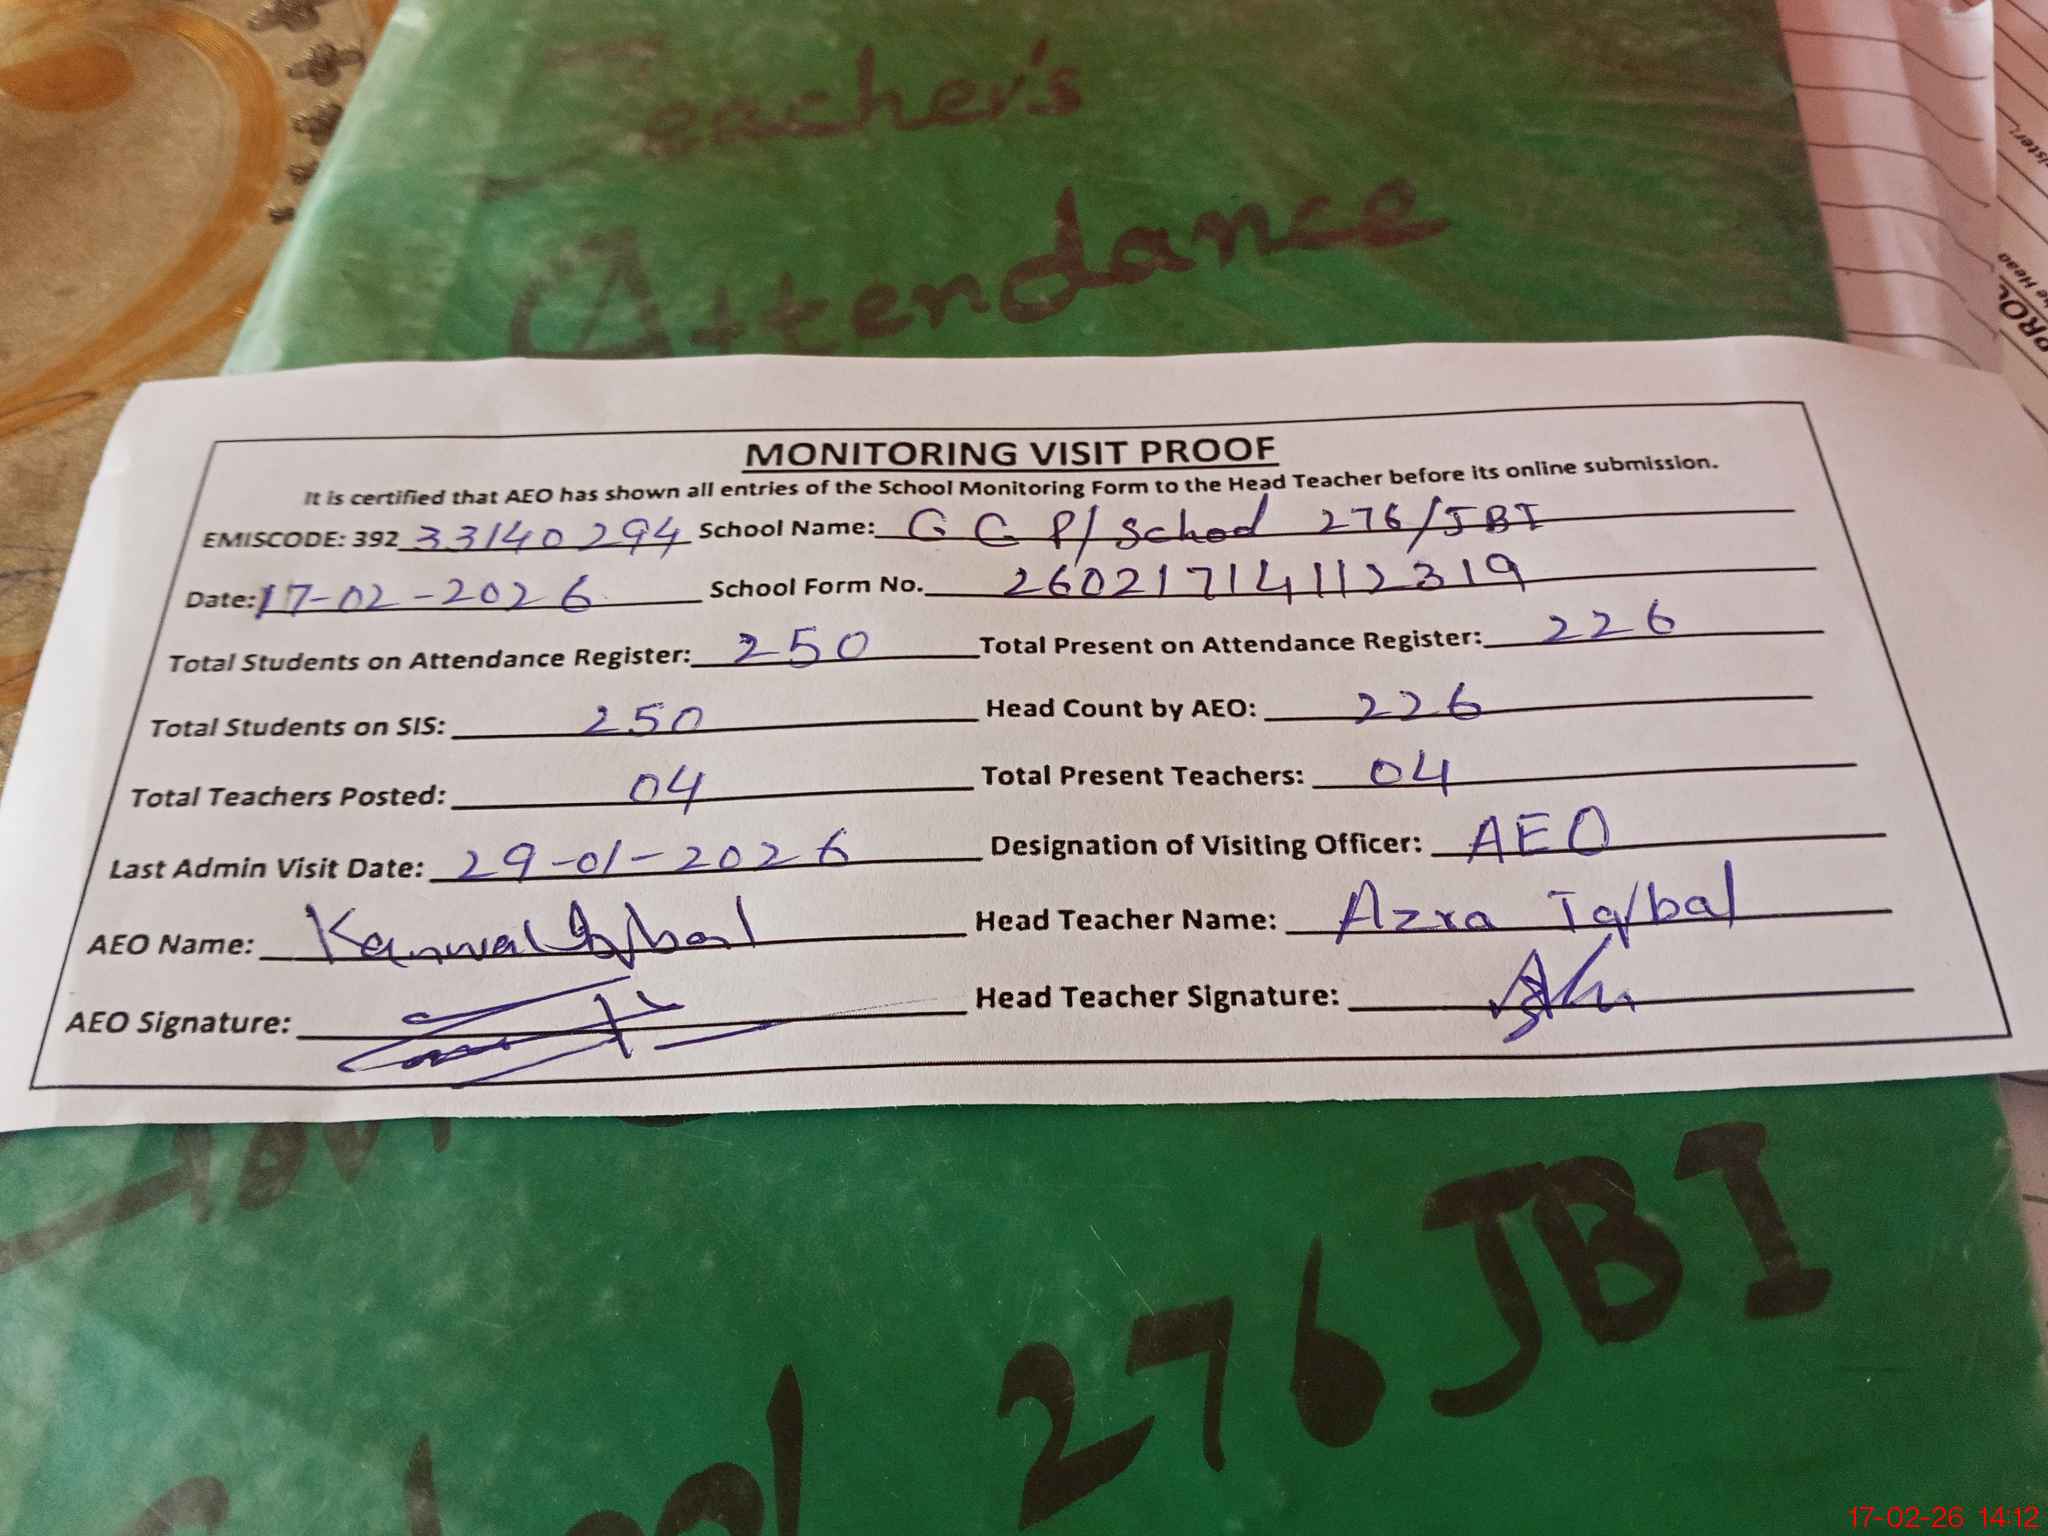 Teacher's
Attendance
MONITORING VISIT PROOF
It is certified that AEO has shown all entries of the School Monitoring Form to the Head Teacher before its online submission.
EMISCODE: 392 33140294 School Name: G G P/School 276/JBI
Date: 17-02-2026 School Form No. 260217141112319
Total Students on Attendance Register: 250 Total Present on Attendance Register: 226
Total Students on SIS: 250 Head Count by AEO: 226
Total Teachers Posted: 04 Total Present Teachers: 04
Last Admin Visit Date: 29-01-2026 Designation of Visiting Officer: AEO
AEO Name: Kanwal Iqbal Head Teacher Name: Azra Iqbal
AEO Signature: Head Teacher Signature:
276 JBI
17-02-26 14:12